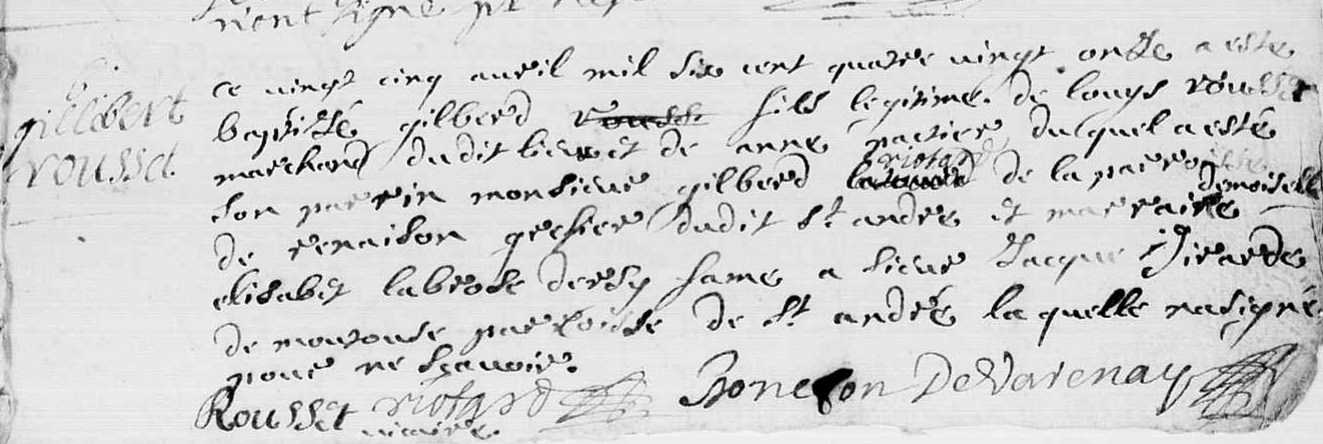 n'ont signé
Gillibert
rousset
ce vingt cinq avril mil six cent quatre vingt onze a esté
baptizé gilberd rousse fils legitime de louys rousset
marchand dudit lieu et de anne patier duquel a esté
son parrin monsieur gilberd riotard de la parroisse
de renaison greffier dudit St andré et marraine demoiselle
elisabet labrosse fame a sieur Jacque Girarde
de parroisse de St andré laquelle na signé
pour ne sçavoir.
Rousset riotard De Varenay
vicaire